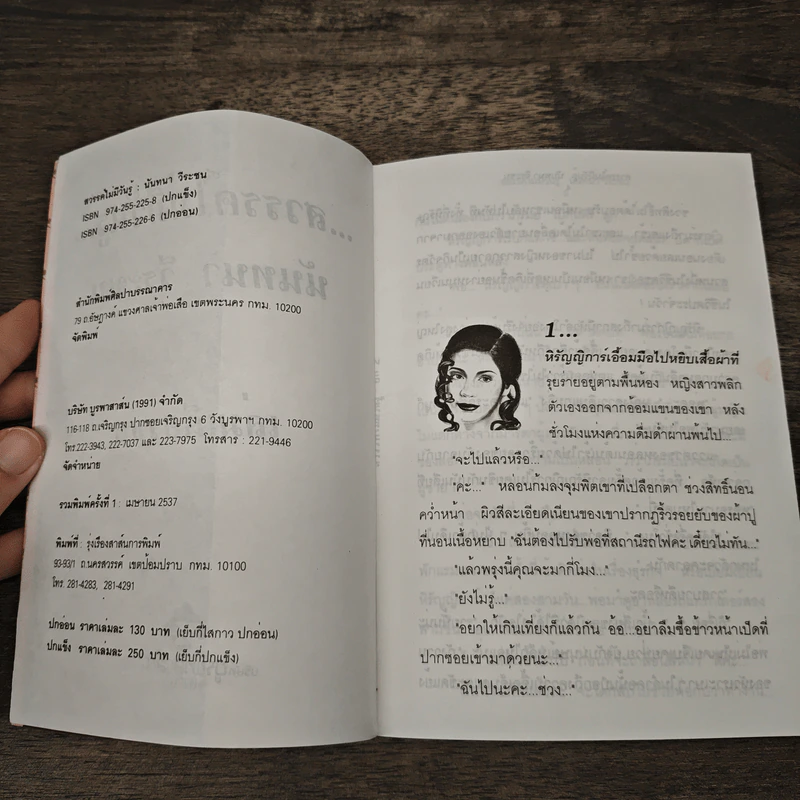 สวรรคไม่มีวันรู้ : นันทนา วีระชน
ISBN 974-255-225-8 (ปกแข็ง)
ISBN 974-255-226-6 (ปกอ่อน)
สำนักพิมพ์ศิลปาบรรณาคาร
79 ถ.อัษฎางค์ แขวงศาลเจ้าพ่อเสือ เขตพระนคร กทม. 10200
จัดพิมพ์
บริษัท บูรพาสาส์น (1991) จำกัด
116-118 ถ.เจริญกรุง ปากซอยเจริญกรุง 6 วังบูรพาฯ กทม. 10200
โทร.222-3943, 222-7037 และ 223-7975 โทรสาร : 221-9446
จัดจำหน่าย
รวมพิมพ์ครั้งที่ 1 : เมษายน 2537
พิมพ์ที่ : รุ่งเรืองสาส์นการพิมพ์
93-93/1 ถ.นครสวรรค์ เขตป้อมปราบ กทม. 10100
โทร. 281-4283, 281-4291
ปกอ่อน ราคาเล่มละ 130 บาท (เย็บกี่ไสกาว ปกอ่อน)
ปกแข็ง ราคาเล่มละ 250 บาท (เย็บกี่ปกแข็ง)
1...
หิรัญญิการ์เอื้อมมือไปหยิบเสื้อผ้าที่
รุ่ยร่ายอยู่ตามพื้นห้อง หญิงสาวพลิก
ตัวเองออกจากอ้อมแขนของเขา หลัง
ชั่วโมงแห่งความดื่มด่ำผ่านพ้นไป...
"จะไปแล้วหรือ..."
"ค่ะ..." หล่อนก้มลงจุมพิตเขาที่เปลือกตา ช่วงสิทธิ์นอน
คว่ำหน้า ผิวสีละเอียดเนียนของเขาปรากฏริ้วรอยยับของผ้าปู
ที่นอนเนื้อหยาบ "ฉันต้องไปรับพ่อที่สถานีรถไฟค่ะ เดี๋ยวไม่ทัน..."
"แล้วพรุ่งนี้คุณจะมากี่โมง..."
"ยังไม่รู้..."
"อย่าให้เกินเที่ยงก็แล้วกัน อ้อ...อย่าลืมซื้อข้าวหน้าเป็ดที่
ปากซอยเข้ามาด้วยนะ..."
"ฉันไปนะคะ...ช่วง..."